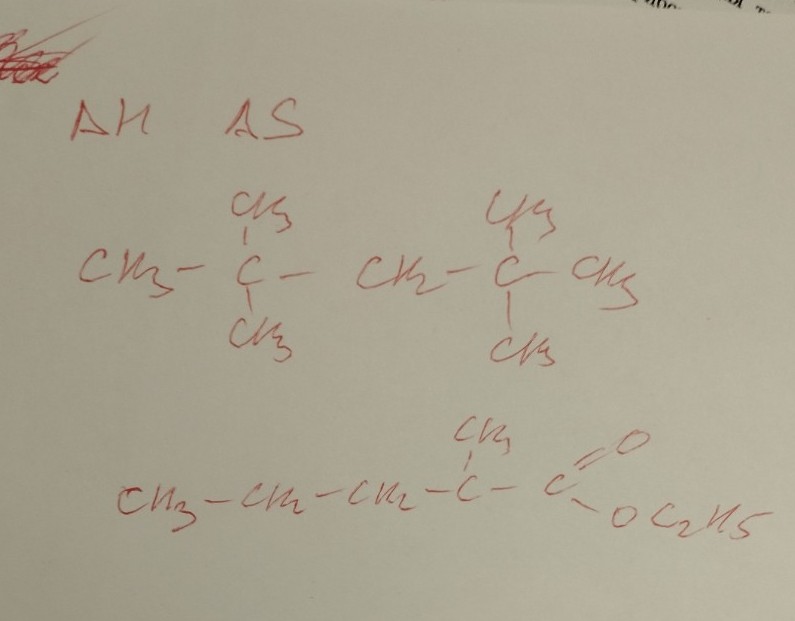 ΔH ΔS
CH3 CH3
CH3 - C - CH2 - C - CH3
CH3 CH3
CH3 O
CH3 - CH2 - CH2 - C - C
OC2H5